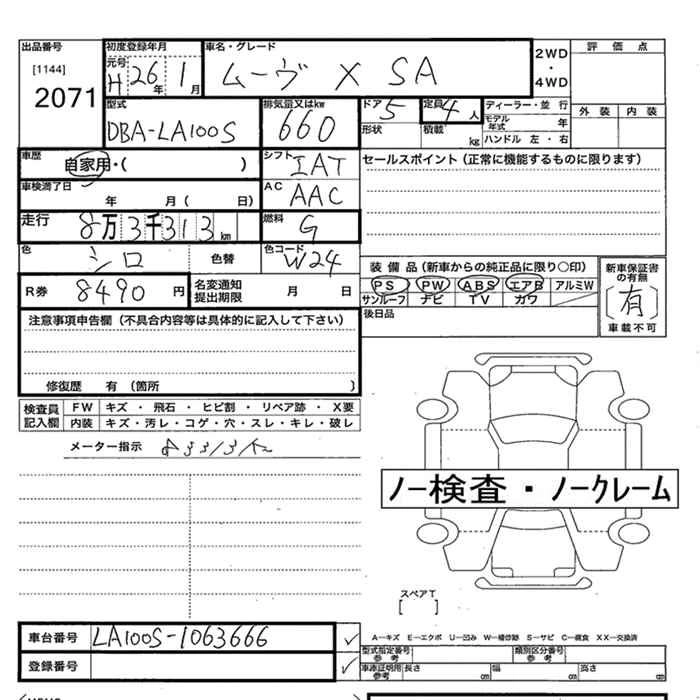 出品番号
[1144]
2071
初度登録年月
元号
H 26年 1月
車名・グレード
ムーヴ X SA
2WD
・
4WD
評価点
外装 内装
型式
DBA-LA100S
排気量又はkw
660
ドア 5
定員 4人
形状
積載 kg
ディーラー・並行
モデル年式 年
ハンドル 左・右
車歴
自家用・( )
シフト
IAT
セールスポイント(正常に機能するものに限ります)
車検満了日
年 月( 日)
AC
AAC
走行
8万3千313km
燃料
G
色
シロ
色替
色コード
W24
装備品(新車からの純正品に限り○印)
PS PW ABS エアB アルミW
サンルーフ ナビ TV カワ
新車保証書の有無
[有]
車載不可
R券 8490円
名変通知
提出期限
月 日
後日品
注意事項申告欄(不具合内容等は具体的に記入して下さい)
修復歴 有(箇所 )
検査員
記入欄
FW キズ・飛石・ヒビ割・リペア跡・X要
内装 キズ・汚レ・コゲ・穴・スレ・キレ・破レ
メーター指示 83313km
ノー検査・ノークレーム
スペアT
[ ]
車台番号 LA100S-1063666
登録番号
A―キズ E―エクボ U―凹み W―補修跡 S―サビ C―腐食 XX―交換済
型式指定番号
参考
類別区分番号
参考
車庫証明用
参考
長さ cm
幅 cm
高さ cm